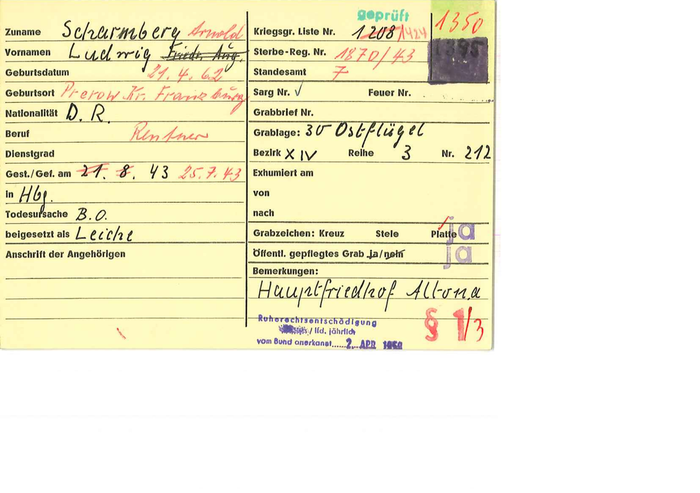 geprüft
1350
Zuname Scharmberg Arnold
Vornamen Ludwig Friedr. Aug.
Geburtsdatum 21.4.62
Geburtsort Prerow Kr. Franzburg
Nationalität D.R.
Beruf Rentner
Dienstgrad
Gest./Gef. am 21. 8. 43 25.7.43
in Hbg.
Todesursache B.O.
beigesetzt als Leiche
Anschrift der Angehörigen
Kriegsgr. Liste Nr. 1208 1424
Sterbe-Reg. Nr. 1870/43
Standesamt 7
Sarg Nr. √ Feuer Nr.
Grabbrief Nr.
Grablage: 30 Ostflügel
Bezirk XIV Reihe 3 Nr. 212
Exhumiert am
von
nach
Grabzeichen: Kreuz Stele Platte ja
Öffentl. gepflegtes Grab ja/nein ja
Bemerkungen:
Hauptfriedhof Altona
Ruherechtsentschädigung
/ lfd. jährlich
vom Bund anerkannt 2. APR.
§ 1/3